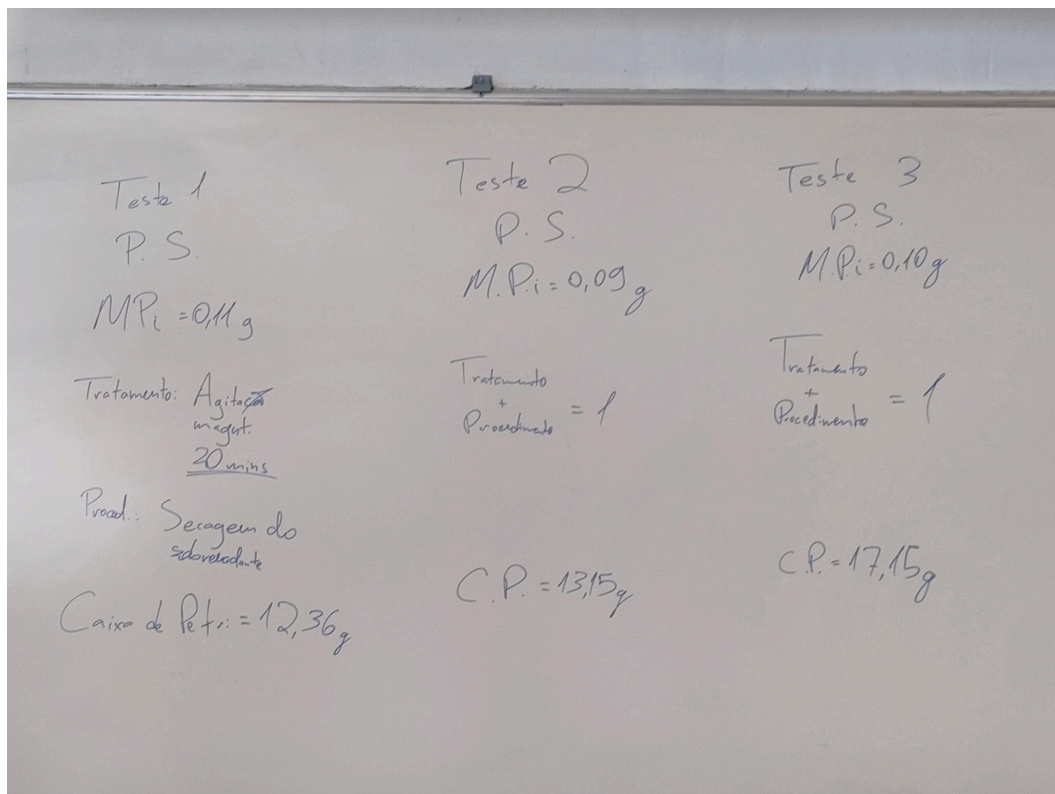 Teste 1
P. S.
MPi = 0,11 g
Tratamento: Agitação
magnt.
20 mins
Proced.: Secagem do
sobrenadante
Caixa de Petri = 12,36 g
Teste 2
P. S.
M.P.i = 0,09 g
Tratamento
+
Procedimento
= 1
C.P. = 13,15 g
Teste 3
P. S.
M.Pi = 0,10 g
Tratamento
+
Procedimento
= 1
C.P. = 17,15 g